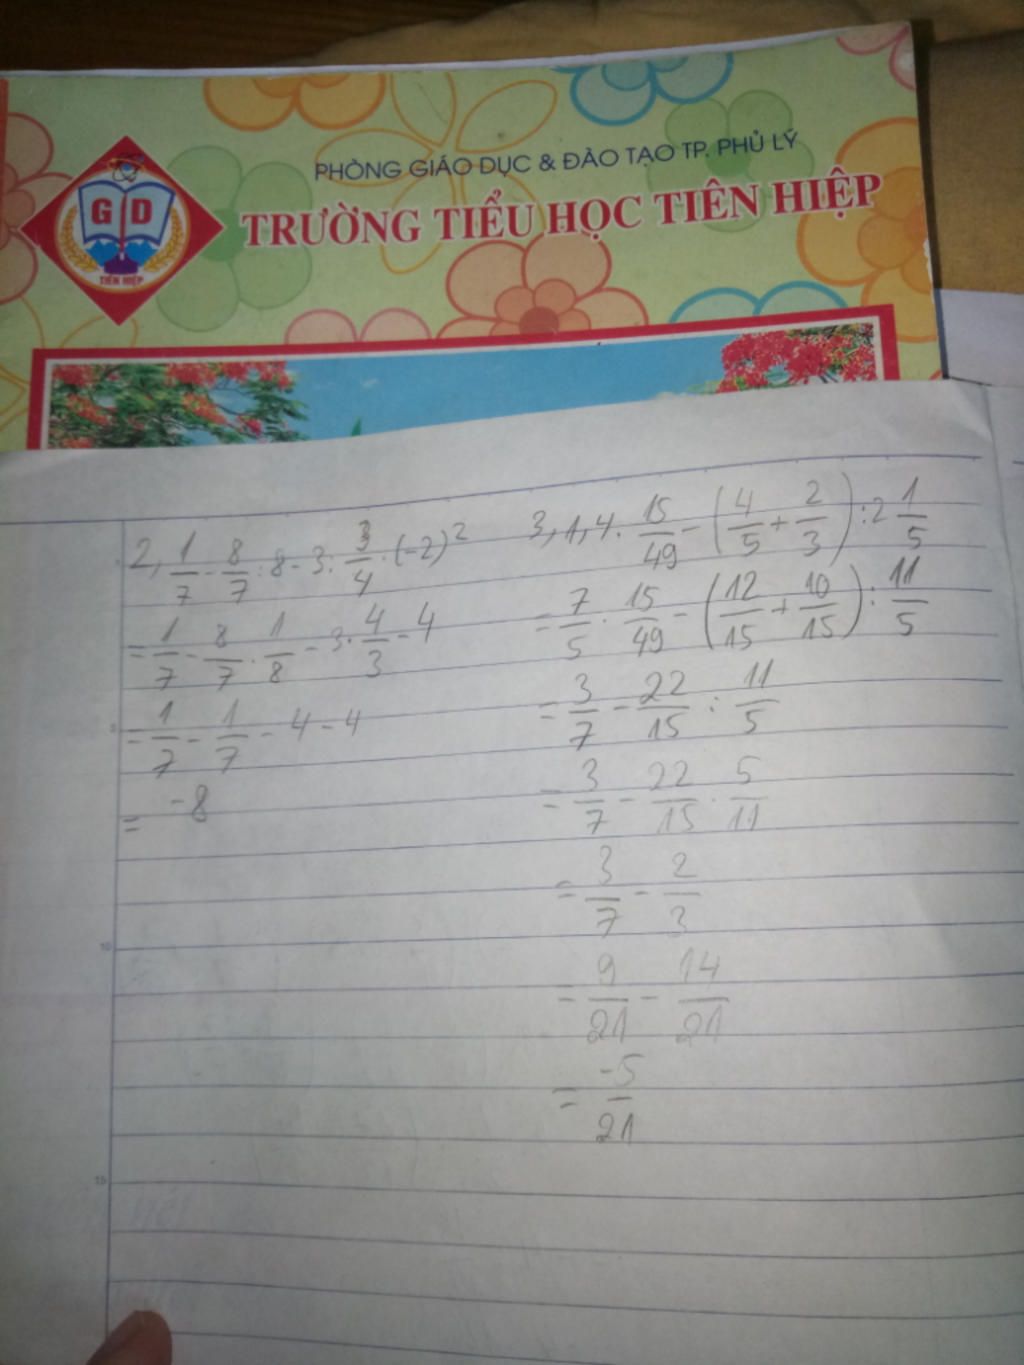 PHÒNG GIÁO DỤC & ĐÀO TẠO TP. PHỦ LÝ
TRƯỜNG TIỂU HỌC TIÊN HIỆP
G D
TIÊN HIỆP
2, 1/7 - 8/7 : 8 - 3 : 3/4 . (-2)²
= 1/7 - 8/7 . 1/8 - 3 . 4/3 - 4
= 1/7 - 1/7 - 4 - 4
= -8
3, 1,4 . 15/49 - (4/5 + 2/3) : 2 1/5
= 7/5 . 15/49 - (12/15 + 10/15) : 11/5
= 3/7 - 22/15 : 11/5
= 3/7 - 22/15 . 5/11
= 3/7 - 2/3
= 9/21 - 14/21
= -5/21
5
10
15